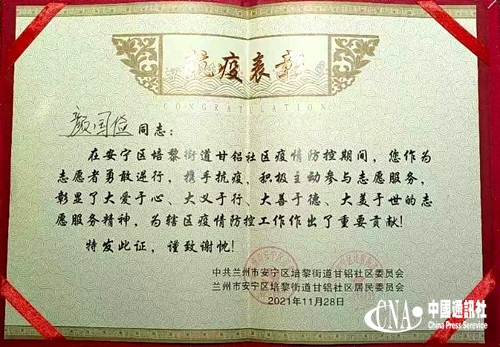 抗疫表彰
CONGRATULATION
颜国俭 同志：
在安宁区培黎街道甘铝社区疫情防控期间，您作为
志愿者勇敢逆行，携手抗疫，积极主动参与志愿服务，
彰显了大爱于心、大义于行、大善于德、大美于世的志
愿服务精神，为辖区疫情防控工作作出了重要贡献！
特发此证，谨致谢忱！
中共兰州市安宁区培黎街道甘铝社区委员会
兰州市安宁区培黎街道甘铝社区居民委员会
2021年11月28日
CNA 中國通訊社
China Press Serevice